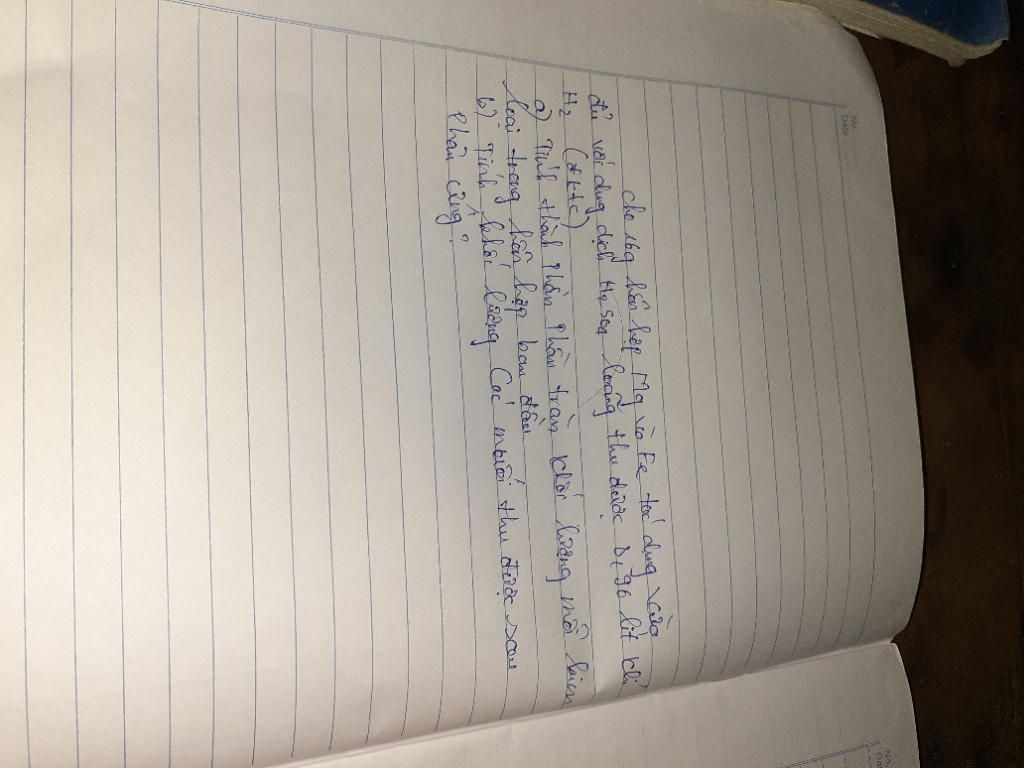 Cho 16g hỗn hợp Mg và Fe tác dụng vừa
đủ với dung dịch H2SO4 loãng thu được 8,96 lít khí
H2 (đktc)
a) Tính thành phần phần trăm khối lượng mỗi kim
loại trong hỗn hợp ban đầu
b) Tính khối lượng các muối thu được sau
phản ứng?
No.
Date
No.
Dat